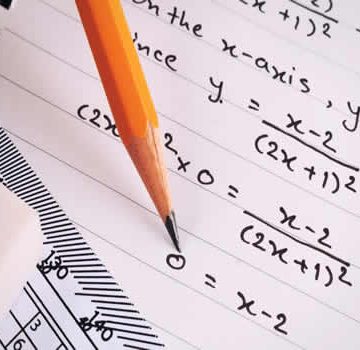 x + 1)²
on the x-axis, y
ince y = x-2
(2x + 1)²
(2x ² × 0 = x-2
(2x + 1)²
0 = x-2
3
6